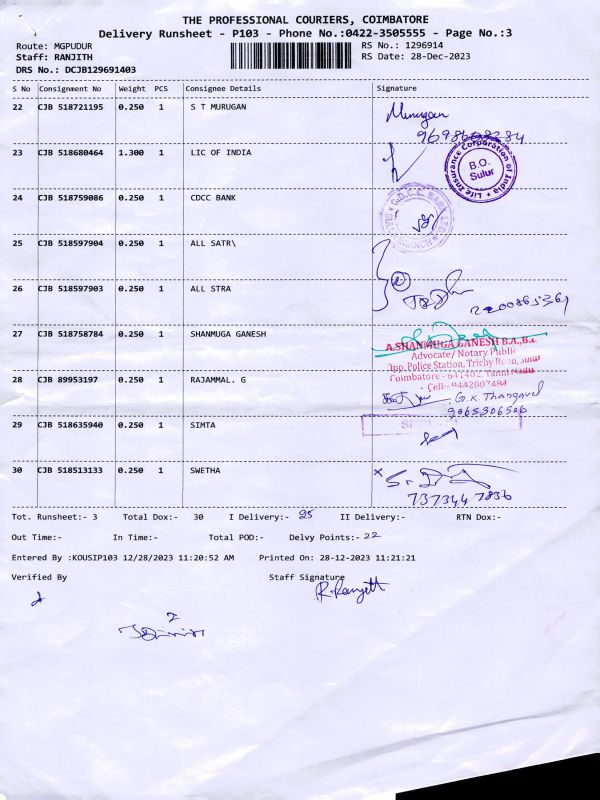 THE PROFESSIONAL COURIERS, COIMBATORE
Delivery Runsheet - P103 - Phone No.:0422-3505555 - Page No.:3
Route: MGPUDUR RS No.: 1296914
Staff: RANJITH RS Date: 28-Dec-2023
DRS No.: DCJB129691403
S No Consignment No Weight PCS Consignee Details Signature
22 CJB 518721195 0.250 1 S T MURUGAN Murugan
23 CJB 518680464 1.300 1 LIC OF INDIA
Life Insurance Corporation of India
B.O.
Sulur
24 CJB 518759086 0.250 1 CDCC BANK
25 CJB 518597904 0.250 1 ALL SATR\
26 CJB 518597903 0.250 1 ALL STRA
27 CJB 518758784 0.250 1 SHANMUGA GANESH
A.SHANMUGA GANESH B.A.,B.L.
Advocate/ Notary Public
Opp. Police Station, Trichy Road, Sulur
Coimbatore - 641402, Tamil Nadu
Cell: 9442607484
28 CJB 89953197 0.250 1 RAJAMMAL. G G.K. Thangavel
9065306506
29 CJB 518635940 0.250 1 SIMTA
30 CJB 518513133 0.250 1 SWETHA
737344 7836
Tot. Runsheet:- 3 Total Dox:- 30 I Delivery:- 25 II Delivery:- RTN Dox:-
Out Time:- In Time:- Total POD:- Delvy Points:- 22
Entered By :KOUSIP103 12/28/2023 11:20:52 AM Printed On: 28-12-2023 11:21:21
Verified By Staff Signature
R. Ranjett